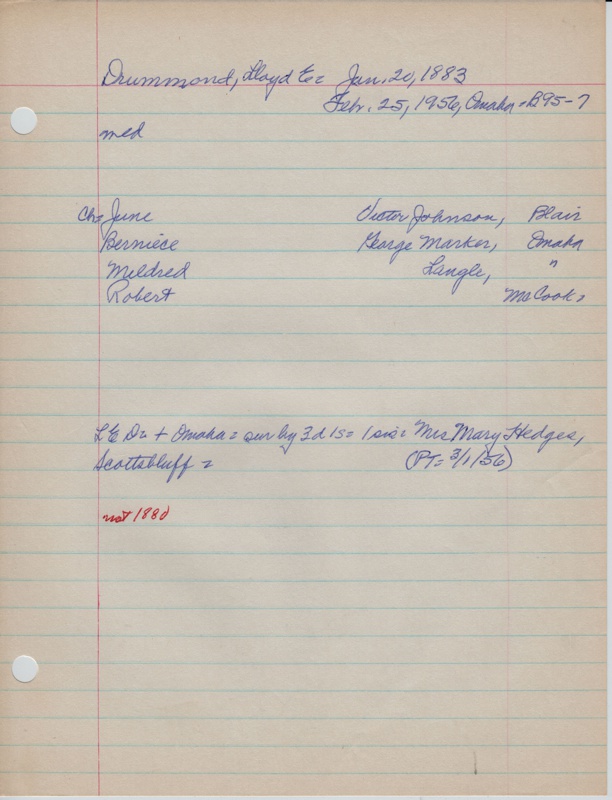 Drummond, Lloyd E = Jan. 20, 1883
Febr. 25, 1956, Omaha = B95-7
med
Ch = June Victor Johnson, Blair
Berniece George Marker, Omaha
Mildred Langle, "
Robert McCook =
L E Dr + Omaha = sur by 3d 1s = 1 sis = Mrs Mary Hedges,
Scottsbluff = (PT = 3/1/56)
not 1880